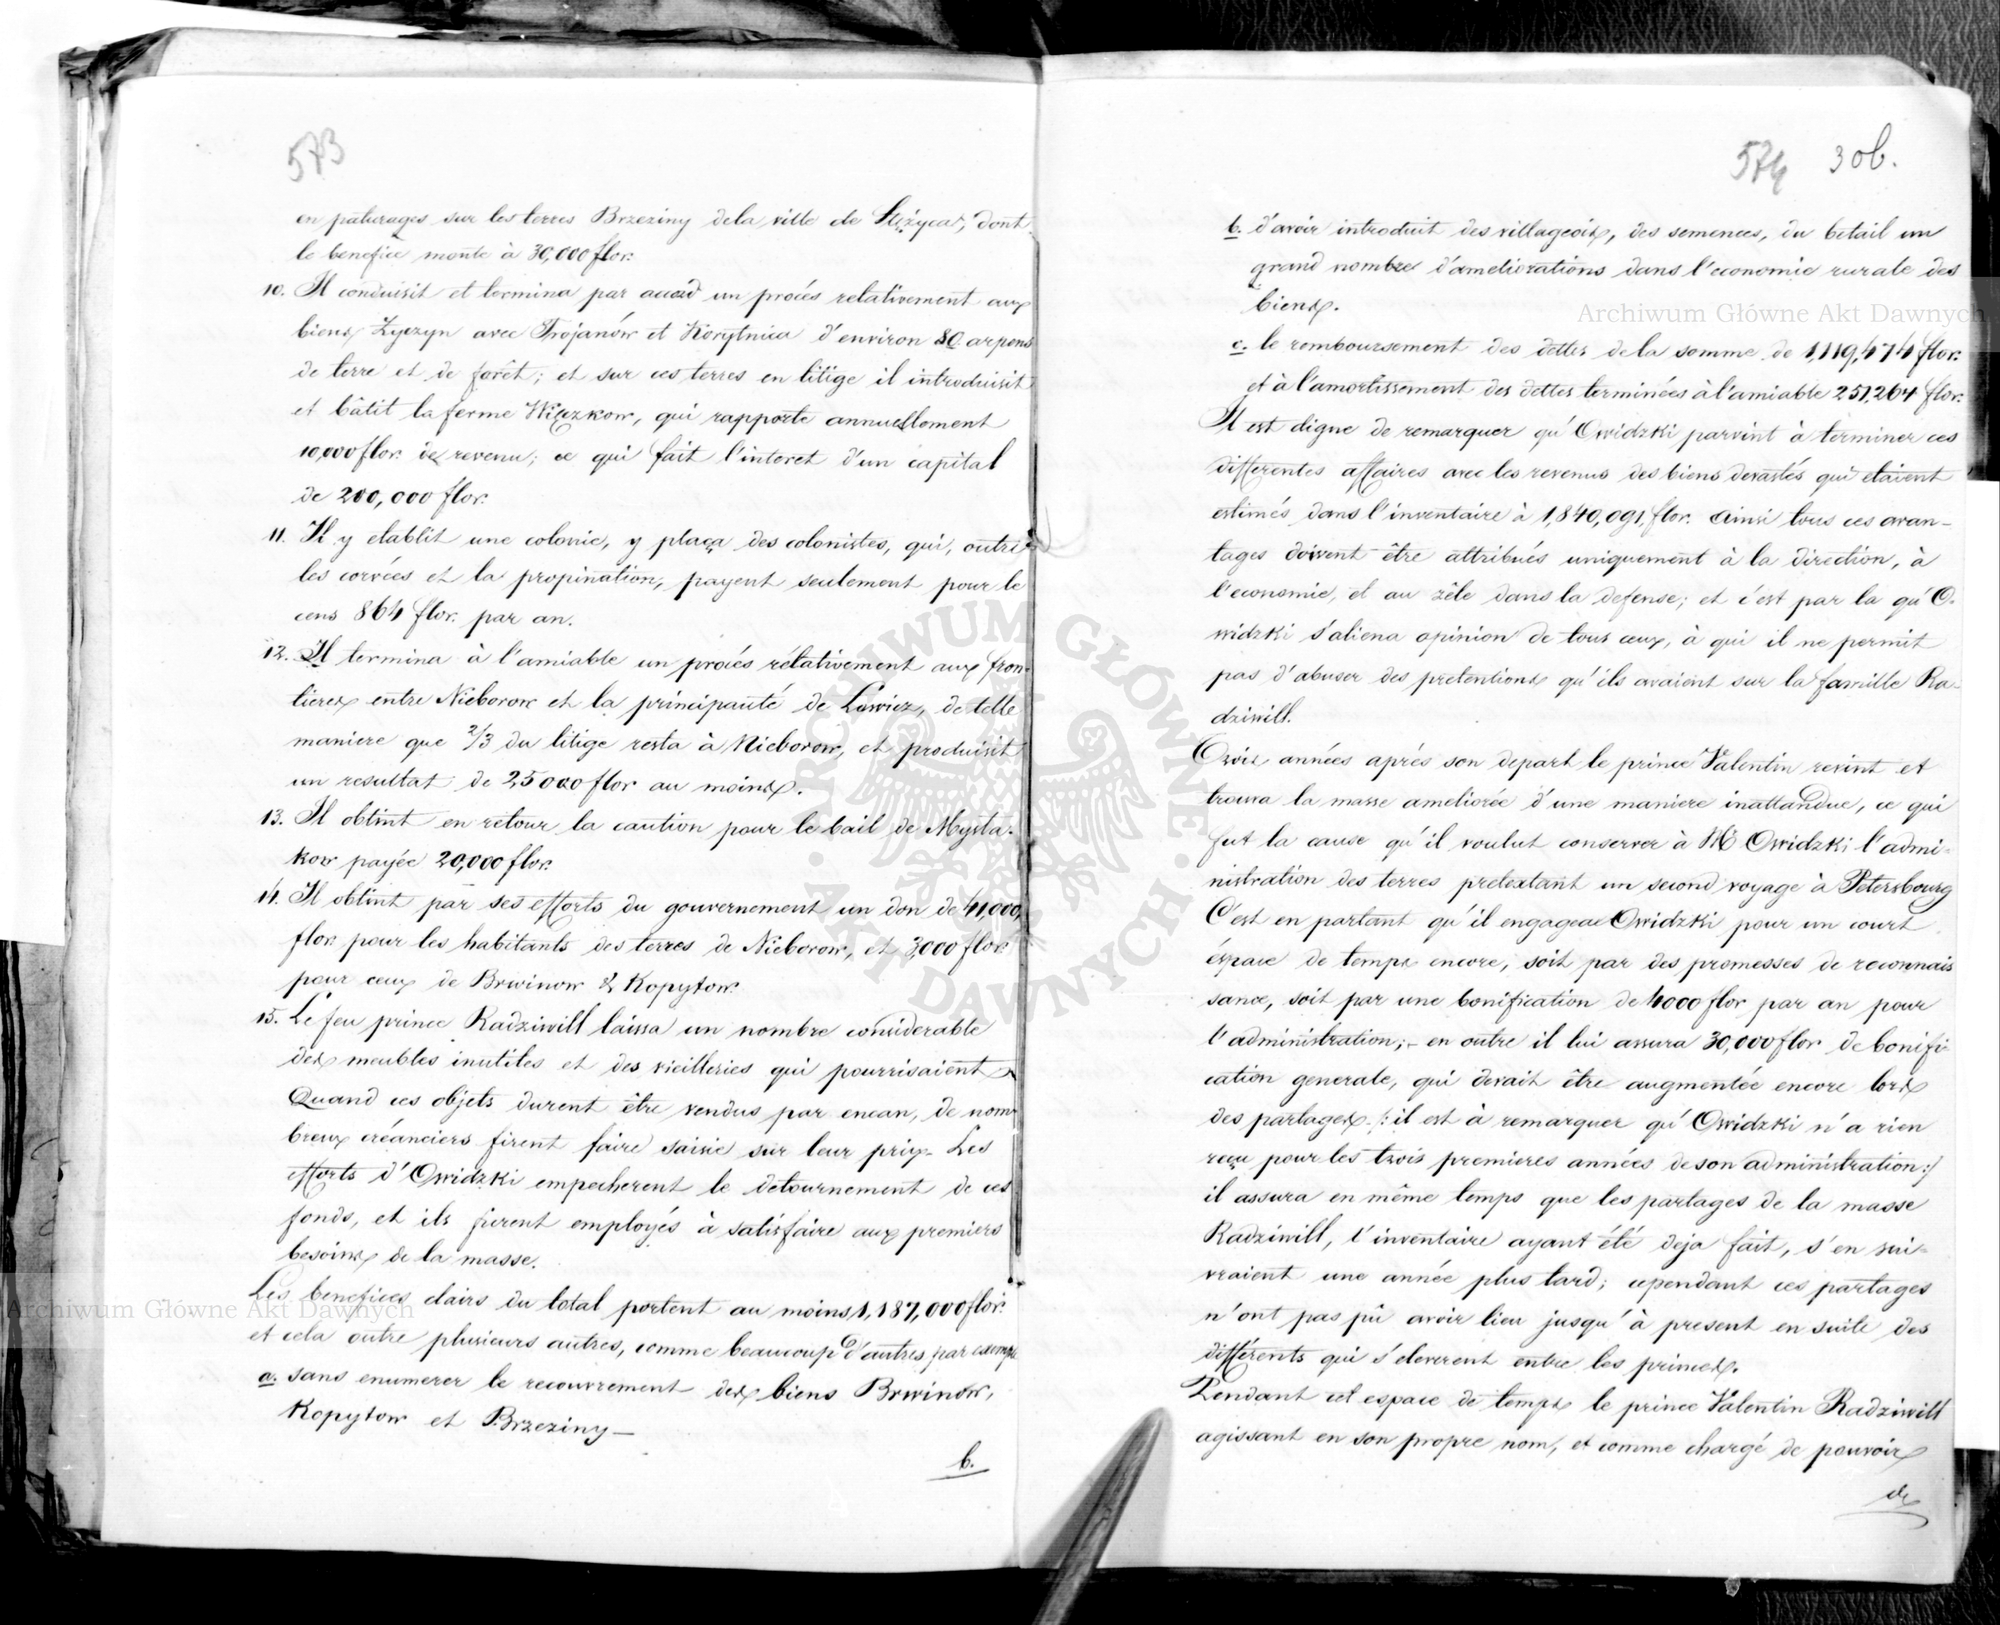 573
en paturages sur les terres Brzeziny de la ville de Stężyca, dont
le benefice monte à 30,000 flor.
10. Il conduisit et termina par accord un procés relativement aux
biens Życzyn avec Trojanów et Korytnica d'environ 80 arpens
de terre et de forêt; et sur ces terres en litige il introduisit
et bâtit la ferme Więzkow, qui rapporte annuellement
10,000 flor. de revenu; ce qui fait l'interet d'un capital
de 200,000 flor.
11. Il y etablit une colonie, y plaça des colonistes, qui, outre
les corvées et la propination, payent seulement pour le
cens 864 flor. par an.
12. Il termina à l'amiable un procés rélativement aux fron-
tieres entre Nieborow et la principauté de Lowicz, de telle
maniere que 2/3 du litige resta à Nieborow, et produisit
un resultat de 25000 flor au moins.
13. Il obtint en retour la caution pour le bail de Mysła-
kow payée 20,000 flor.
14. Il obtint par ses efforts du gouvernement un don de 41,000
flor. pour les habitants des terres de Nieborow, et 3,000 flor.
pour ceux de Brwinow & Kopytow.
15. Le feu prince Radziwill laissa un nombre considerable
des meubles inutiles et des vieilleries qui pourrisaient
Quand ces objets durent être vendus par encan, de nom-
breux créanciers firent faire saisie sur leur prix. Les
efforts d'Owidzki empecherent le detournement de ces
fonds, et ils furent employés à satisfaire aux premiers
besoins de la masse.
Les benefices clairs du total portent au moins 1,187,000 flor.
et cela outre plusieurs autres, comme beaucoup d'autres, par exemple
a. sans enumerer le recouvrement des biens Brwinow,
Kopytow et Brzeziny —
b.
574 306.
b. d'avoir introduit des villageois, des semences, du betail un
grand nombre d'ameliorations dans l'economie rurale des
biens.
c. le remboursement des dettes de la somme de 1,119,474 flor.
et à l'amortissement des dettes terminées à l'amiable 251,264 flor.
Il est digne de remarquer qu'Owidzki parvint à terminer ces
differentes affaires avec les revenus des biens devastés qui etaient
estimés dans l'inventaire à 1,840,091, flor. Ainsi tous ces avan-
tages doivent être attribués uniquement à la direction, à
l'economie, et au zêle dans la defense; et c'est par la qu'O-
widzki s'aliena opinion de tous ceux, à qui il ne permit
pas d'abuser des pretentions qu'ils avaient sur la famille Ra-
dziwill.
Trois années aprés son depart le prince Valentin revint et
trouva la masse ameliorée d'une maniere inattandue, ce qui
fut la cause qu'il voulut conserver à Mr Owidzki l'admi-
nistration des terres pretextant un second voyage à Petersbourg
C'est en partant qu'il engagea Owidzki pour un court
éspace de temps encore, soit par des promesses de reconnais
sance, soit par une bonification de 4000 flor par an pour
l'administration; - en outre il lui assura 30,000 flor de bonifi-
cation generale, qui devait être augmentée encore lors
des partages. /: il est à remarquer qu'Owidzki n'a rien
reçu pour les trois premieres années de son administration :/
il assura en même temps que les partages de la masse
Radziwill, l'inventaire ayant été deja fait, s'en sui-
vraient une année plus tard; cependant ces partages
n'ont pas pû avoir lieu jusqu'à present en suite des
différents qui s'eleverent entre les princes.
Pendant cet espace de temps le prince Valentin Radziwill
agissant en son propre nom, et comme chargé de pouvoir
de
Archiwum Główne Akt Dawnych
Archiwum Główne Akt Dawnych
ARCHIWUM GŁÓWNE · AKT DAWNYCH ·